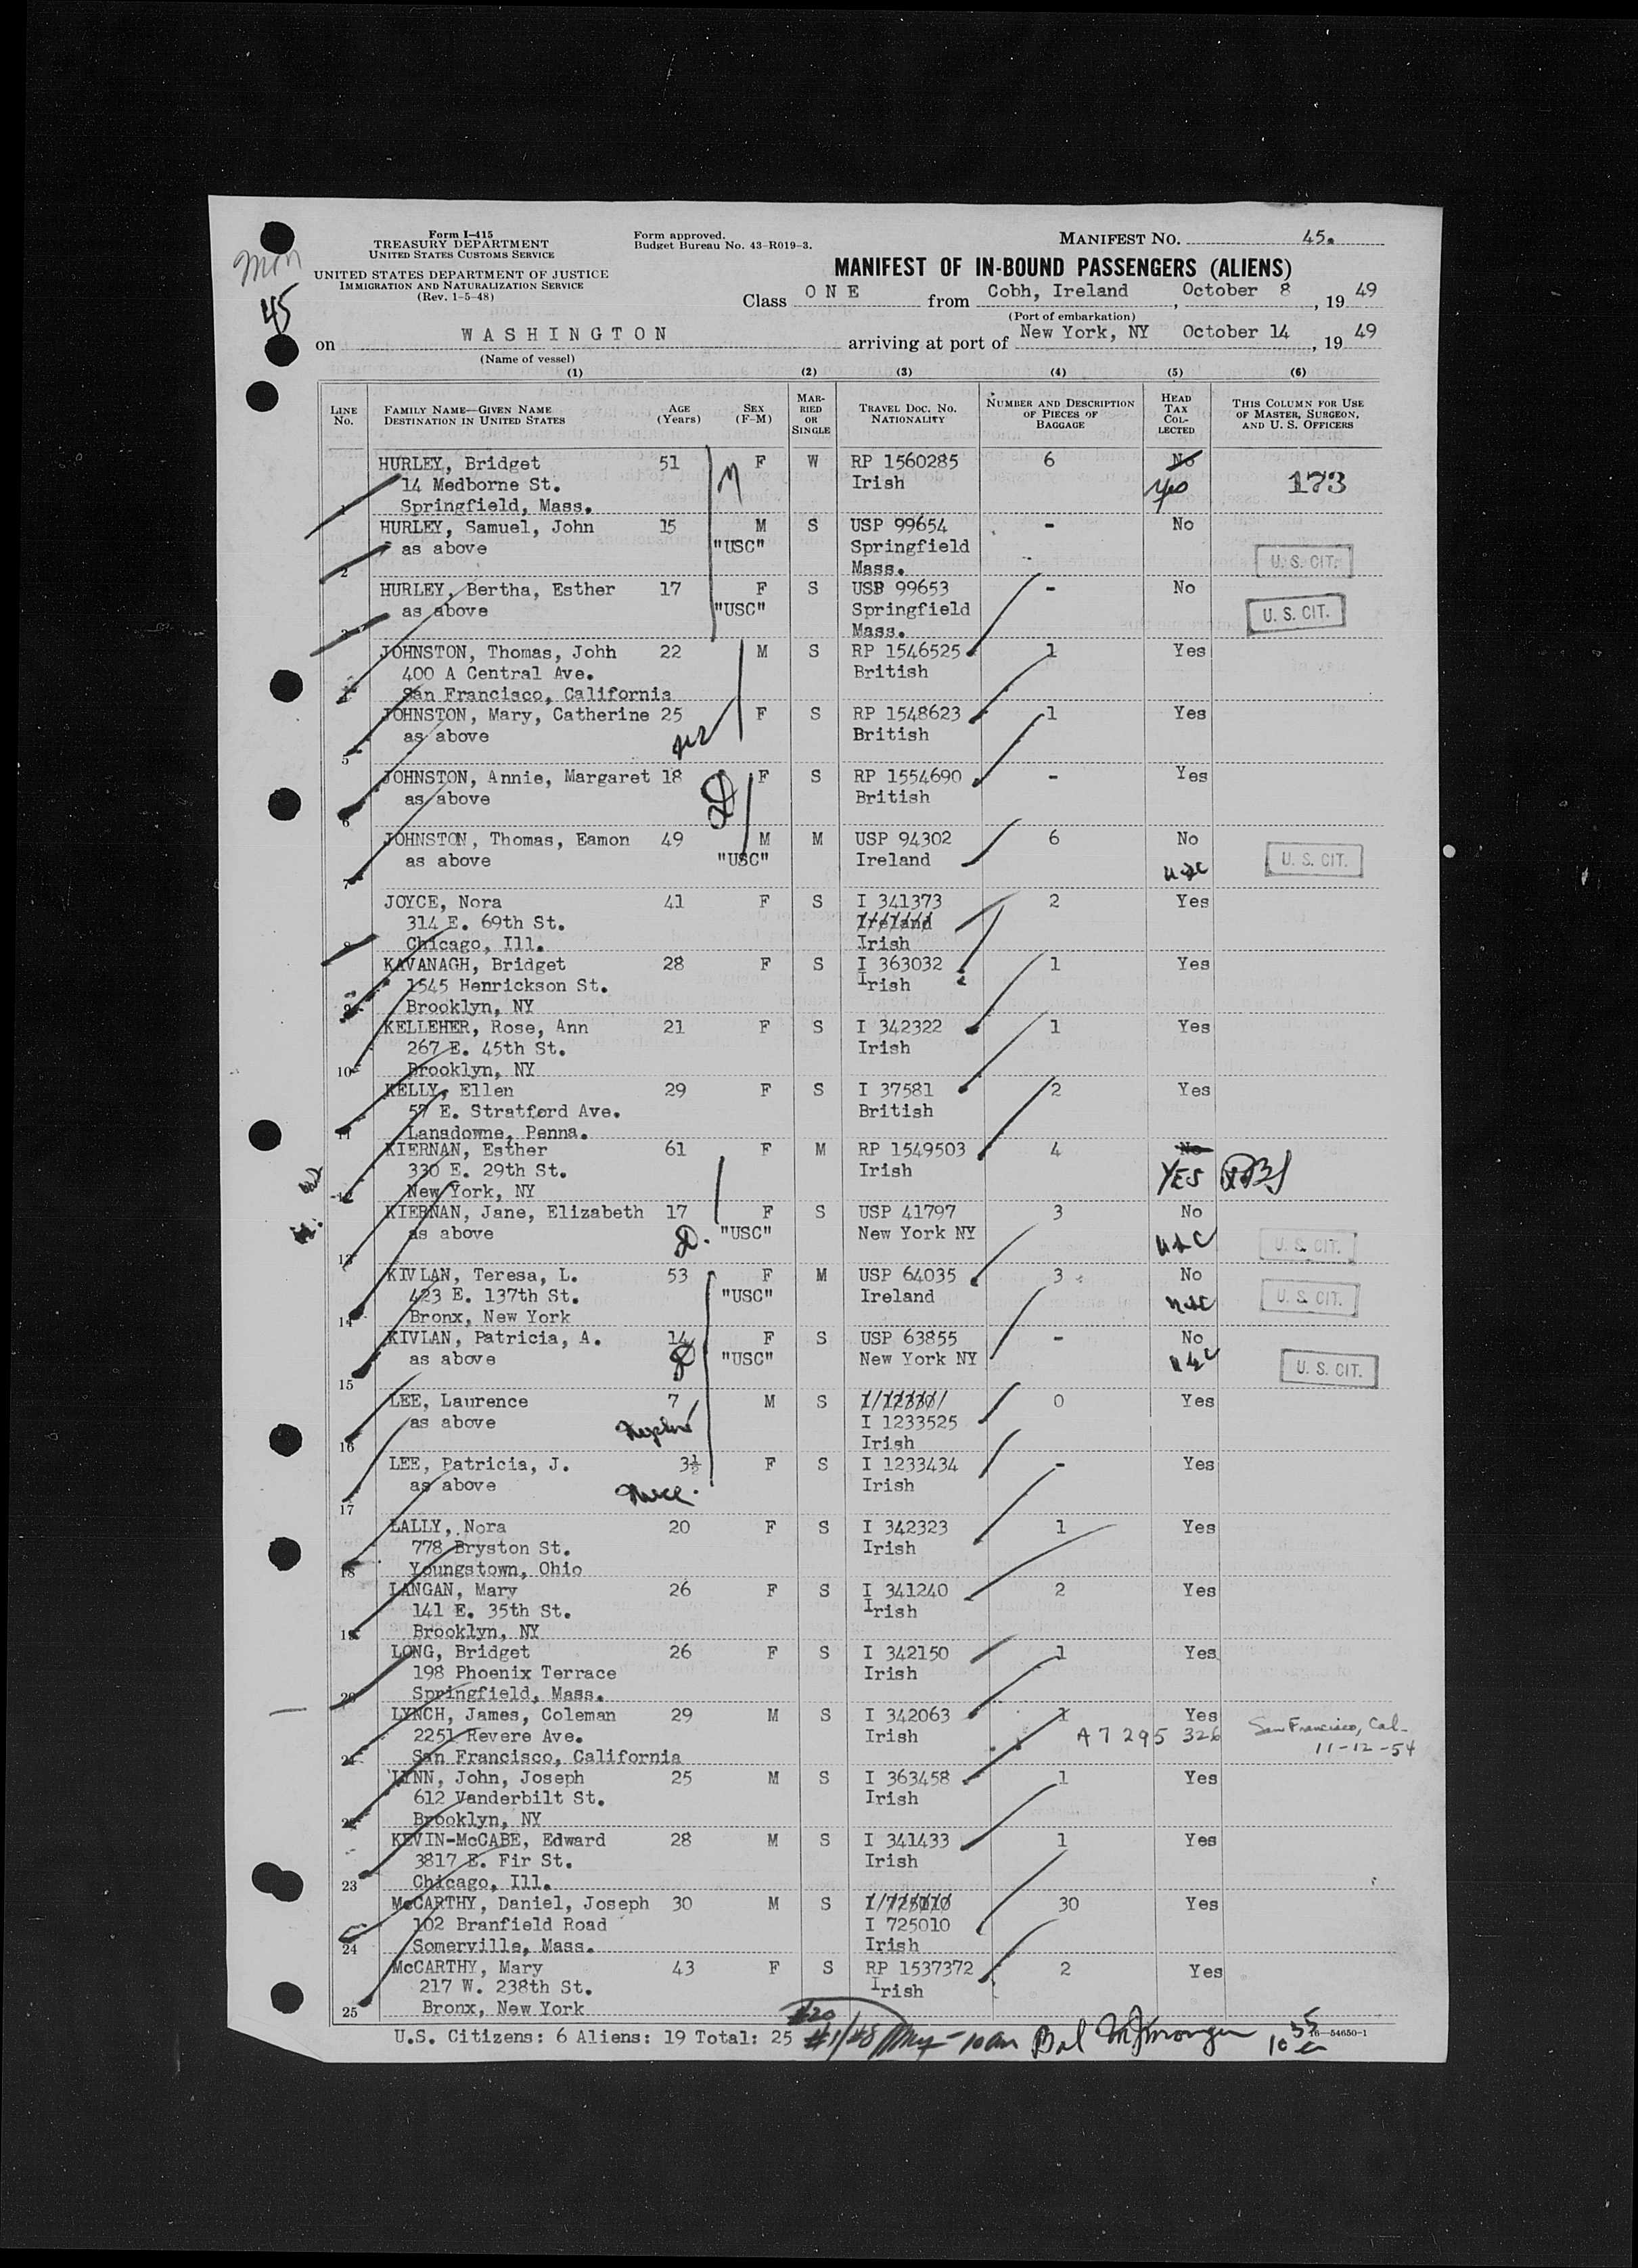 Form I-415
TREASURY DEPARTMENT
UNITED STATES CUSTOMS SERVICE
UNITED STATES DEPARTMENT OF JUSTICE
IMMIGRATION AND NATURALIZATION SERVICE
(Rev. 1-5-48)
Form approved.
Budget Bureau No. 43-R019-3.
MANIFEST NO. 45.
45
MANIFEST OF IN-BOUND PASSENGERS (ALIENS)
Class O N E from Cobh, Ireland, October 8, 19 49
(Port of embarkation)
on W A S H I N G T O N arriving at port of New York, NY October 14, 19 49
(Name of vessel)
(1) (2) (3) (4) (5) (6)
LINE No. FAMILY NAME—GIVEN NAME DESTINATION IN UNITED STATES AGE (Years) SEX (F-M) MARRIED OR SINGLE TRAVEL DOC. NO. NATIONALITY NUMBER AND DESCRIPTION OF PIECES OF BAGGAGE HEAD TAX COLLECTED THIS COLUMN FOR USE OF MASTER, SURGEON, AND U. S. OFFICERS
HURLEY, Bridget 51 F W RP 1560285 6 No
14 Medborne St. Irish Yes 173
1 Springfield, Mass.
HURLEY, Samuel, John 15 M S USP 99654 - No
as above "USC" Springfield
2 Mass. U. S. CIT.
HURLEY, Bertha, Esther 17 F S USP 99653 - No
as above "USC" Springfield U. S. CIT.
3 Mass.
JOHNSTON, Thomas, John 22 M S RP 1546525 1 Yes
400 A Central Ave. British
4 San Francisco, California
JOHNSTON, Mary, Catherine 25 F S RP 1548623 1 Yes
as above British
5
JOHNSTON, Annie, Margaret 18 F S RP 1554690 - Yes
as above British
6
JOHNSTON, Thomas, Eamon 49 M M USP 94302 6 No
as above "USC" Ireland U. S. CIT.
7 USC
JOYCE, Nora 41 F S I 341373 2 Yes
314 E. 69th St. Ireland
8 Chicago, Ill. Irish
KAVANAGH, Bridget 28 F S I 363032 1 Yes
1545 Henrickson St. Irish
9 Brooklyn, NY
KELLEHER, Rose, Ann 21 F S I 342322 1 Yes
267 E. 45th St. Irish
10 Brooklyn, NY
KELLY, Ellen 29 F S I 37581 2 Yes
57 E. Stratford Ave. British
11 Lansdowne, Penna.
KIERNAN, Esther 61 F M RP 1549503 4 No
330 E. 29th St. Irish YES
12 New York, NY
KIERNAN, Jane, Elizabeth 17 F S USP 41797 3 No
as above "USC" New York NY USC U. S. CIT.
13
KIVLAN, Teresa, L. 53 F M USP 64035 3 No
423 E. 137th St. "USC" Ireland USC U. S. CIT.
14 Bronx, New York
KIVLAN, Patricia, A. 14 F S USP 63855 - No
as above "USC" New York NY USC U. S. CIT.
15
LEE, Laurence 7 M S 0 Yes
as above Nephew I 1233525
16 Irish
LEE, Patricia, J. 3½ F S I 1233434 - Yes
as above Niece. Irish
17
LALLY, Nora 20 F S I 342323 1 Yes
778 Bryston St. Irish
18 Youngstown, Ohio
LANGAN, Mary 26 F S I 341240 2 Yes
141 E. 35th St. Irish
19 Brooklyn, NY
LONG, Bridget 26 F S I 342150 1 Yes
198 Phoenix Terrace Irish
20 Springfield, Mass.
LYNCH, James, Coleman 29 M S I 342063 1 Yes
2251 Revere Ave. Irish A 7 295 326 San Francisco, Cal.
21 San Francisco, California 11-12-54
LYNN, John, Joseph 25 M S I 363458 1 Yes
612 Vanderbilt St. Irish
22 Brooklyn, NY
KEVIN-McCABE, Edward 28 M S I 341433 1 Yes
3817 E. Fir St. Irish
23 Chicago, Ill.
McCARTHY, Daniel, Joseph 30 M S I 725010 30 Yes
102 Branfield Road I 725010
24 Somerville, Mass. Irish
McCARTHY, Mary 43 F S RP 1537372 2 Yes
217 W. 238th St. Irish
25 Bronx, New York
U.S. Citizens: 6 Aliens: 19 Total: 25
16—54650-1